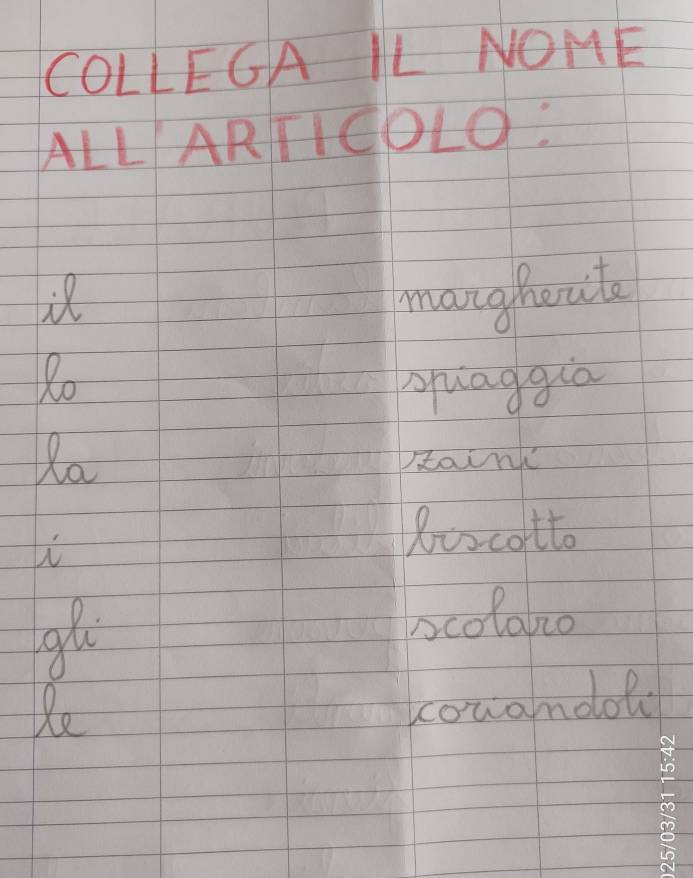 COLLEGA IL NOME
ALL'ARTICOLO:
il margherite
lo spiaggia
la zaini
i biscotto
gli scolaro
le coriandoli
025/03/31 15:42